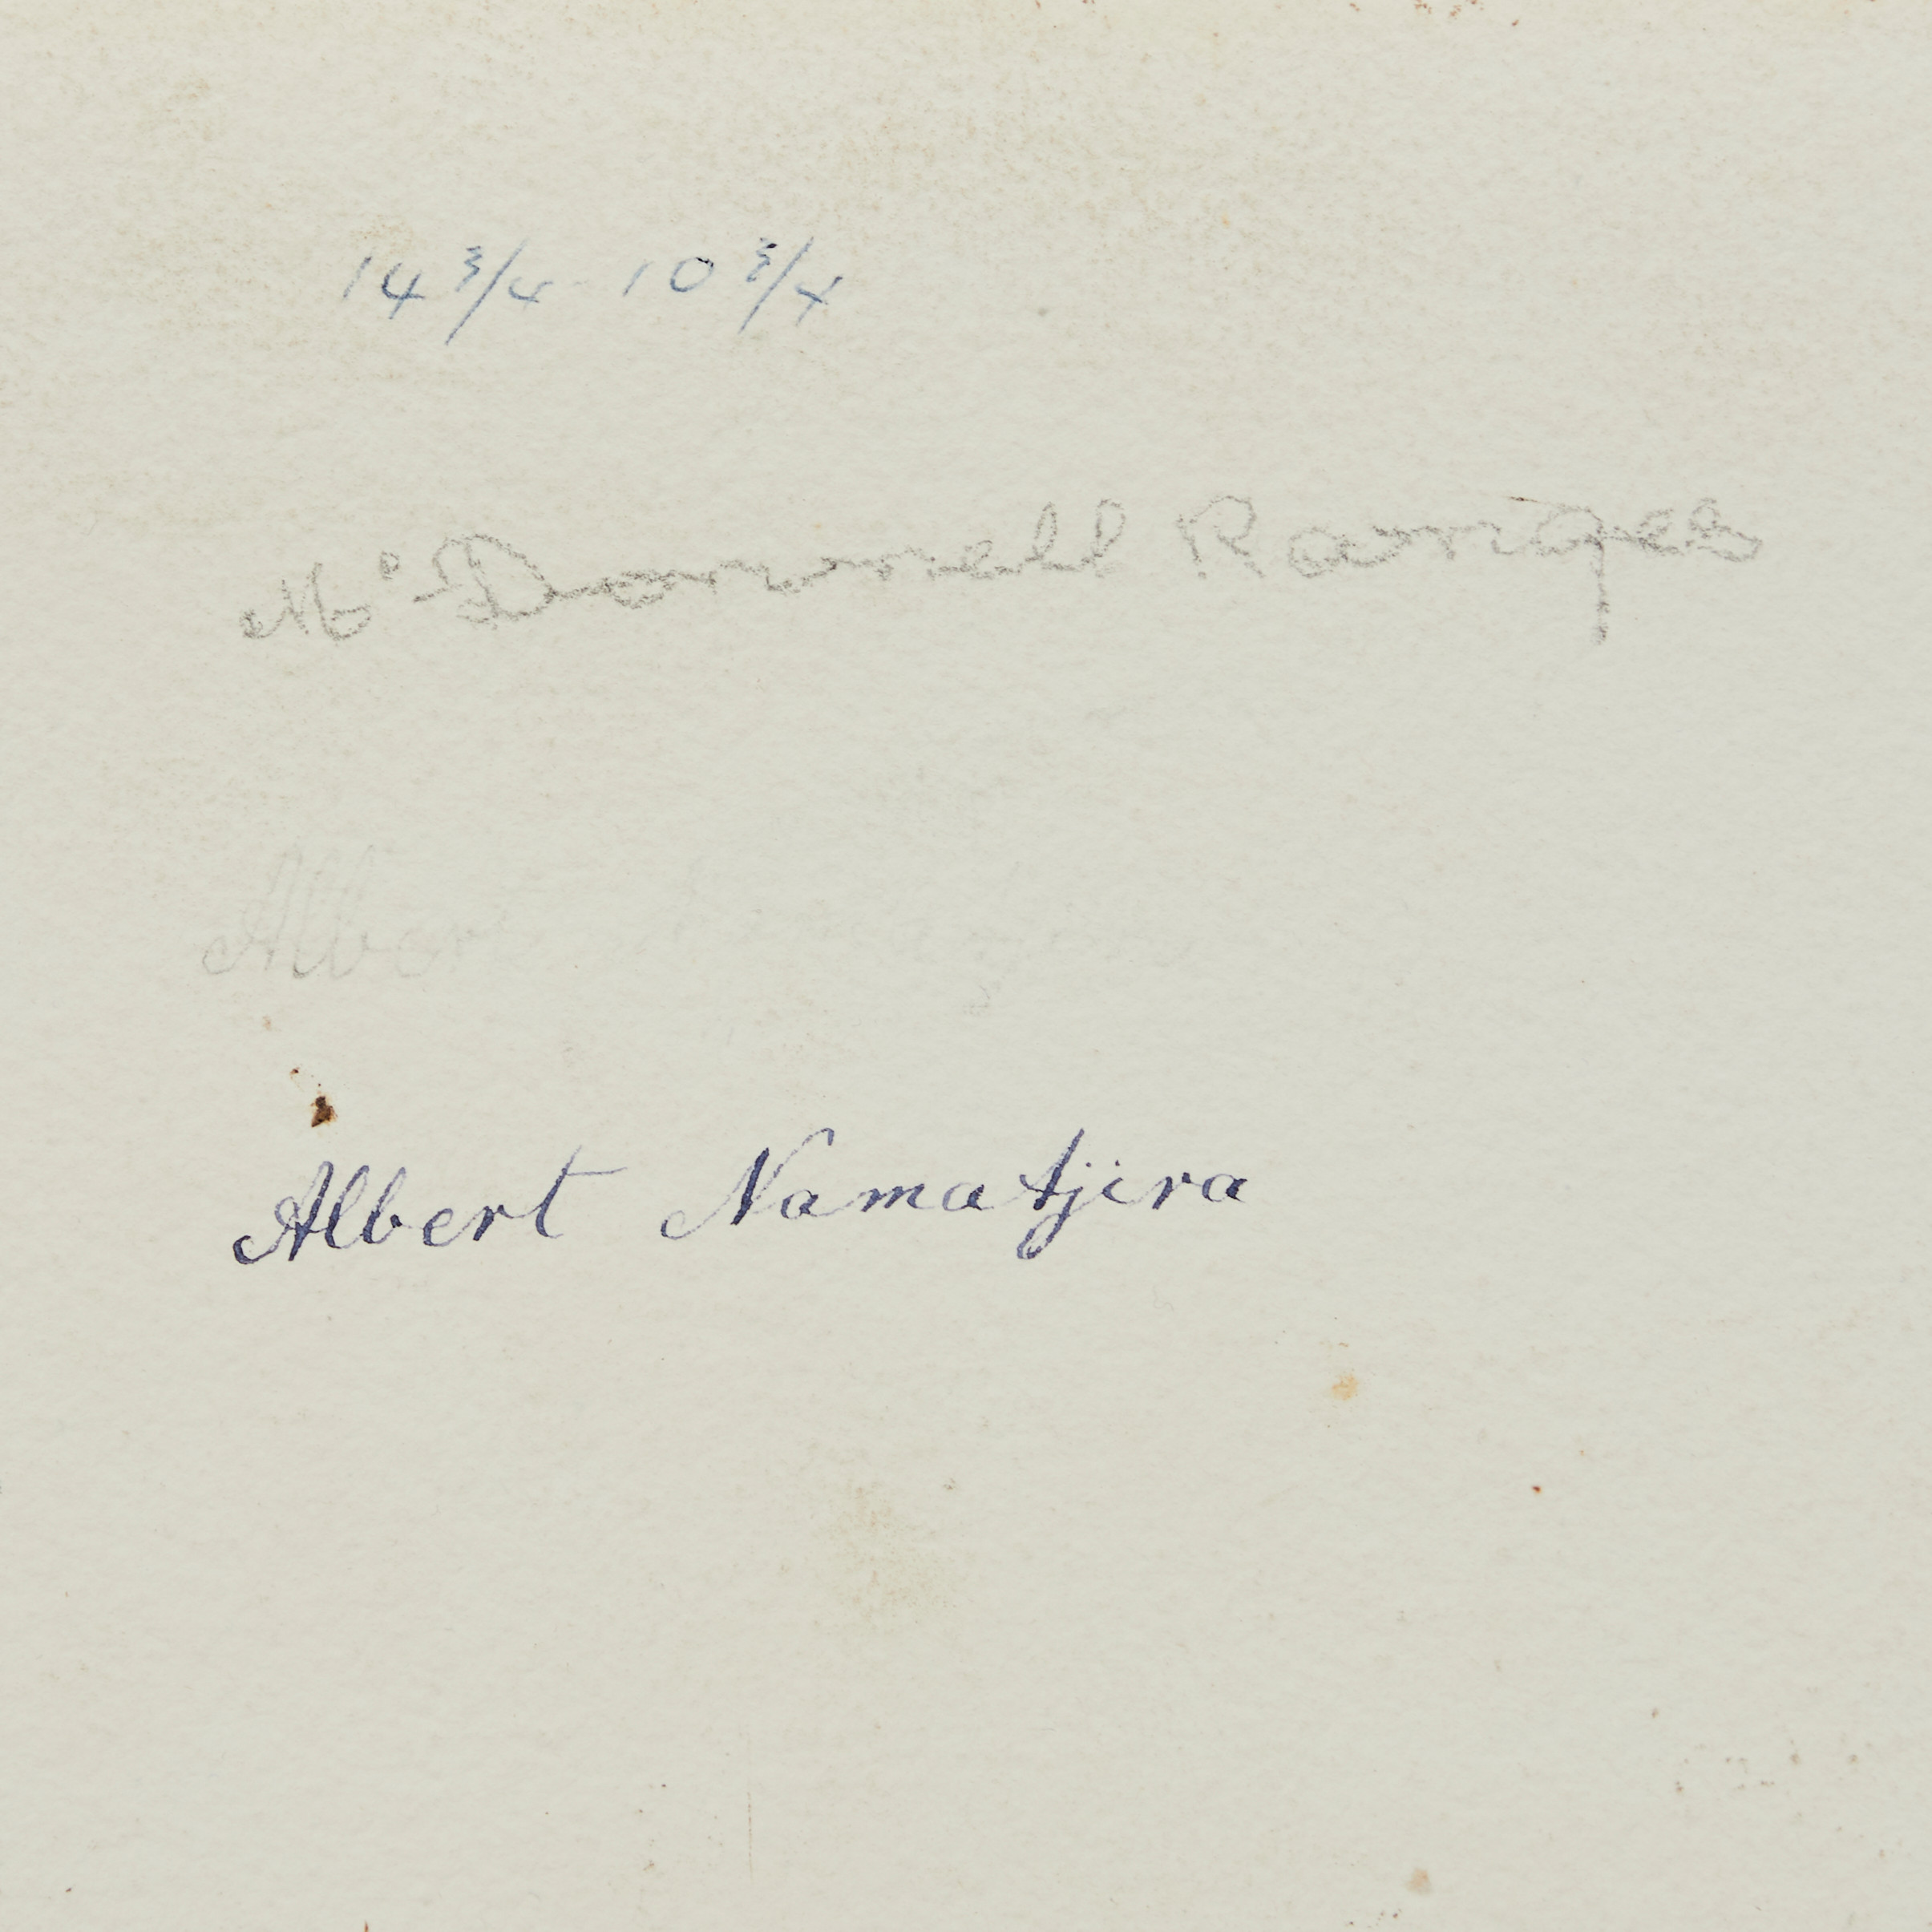 14 3/4 10 3/4
Mc Donnell Ranges
Albert
Albert Namatjira